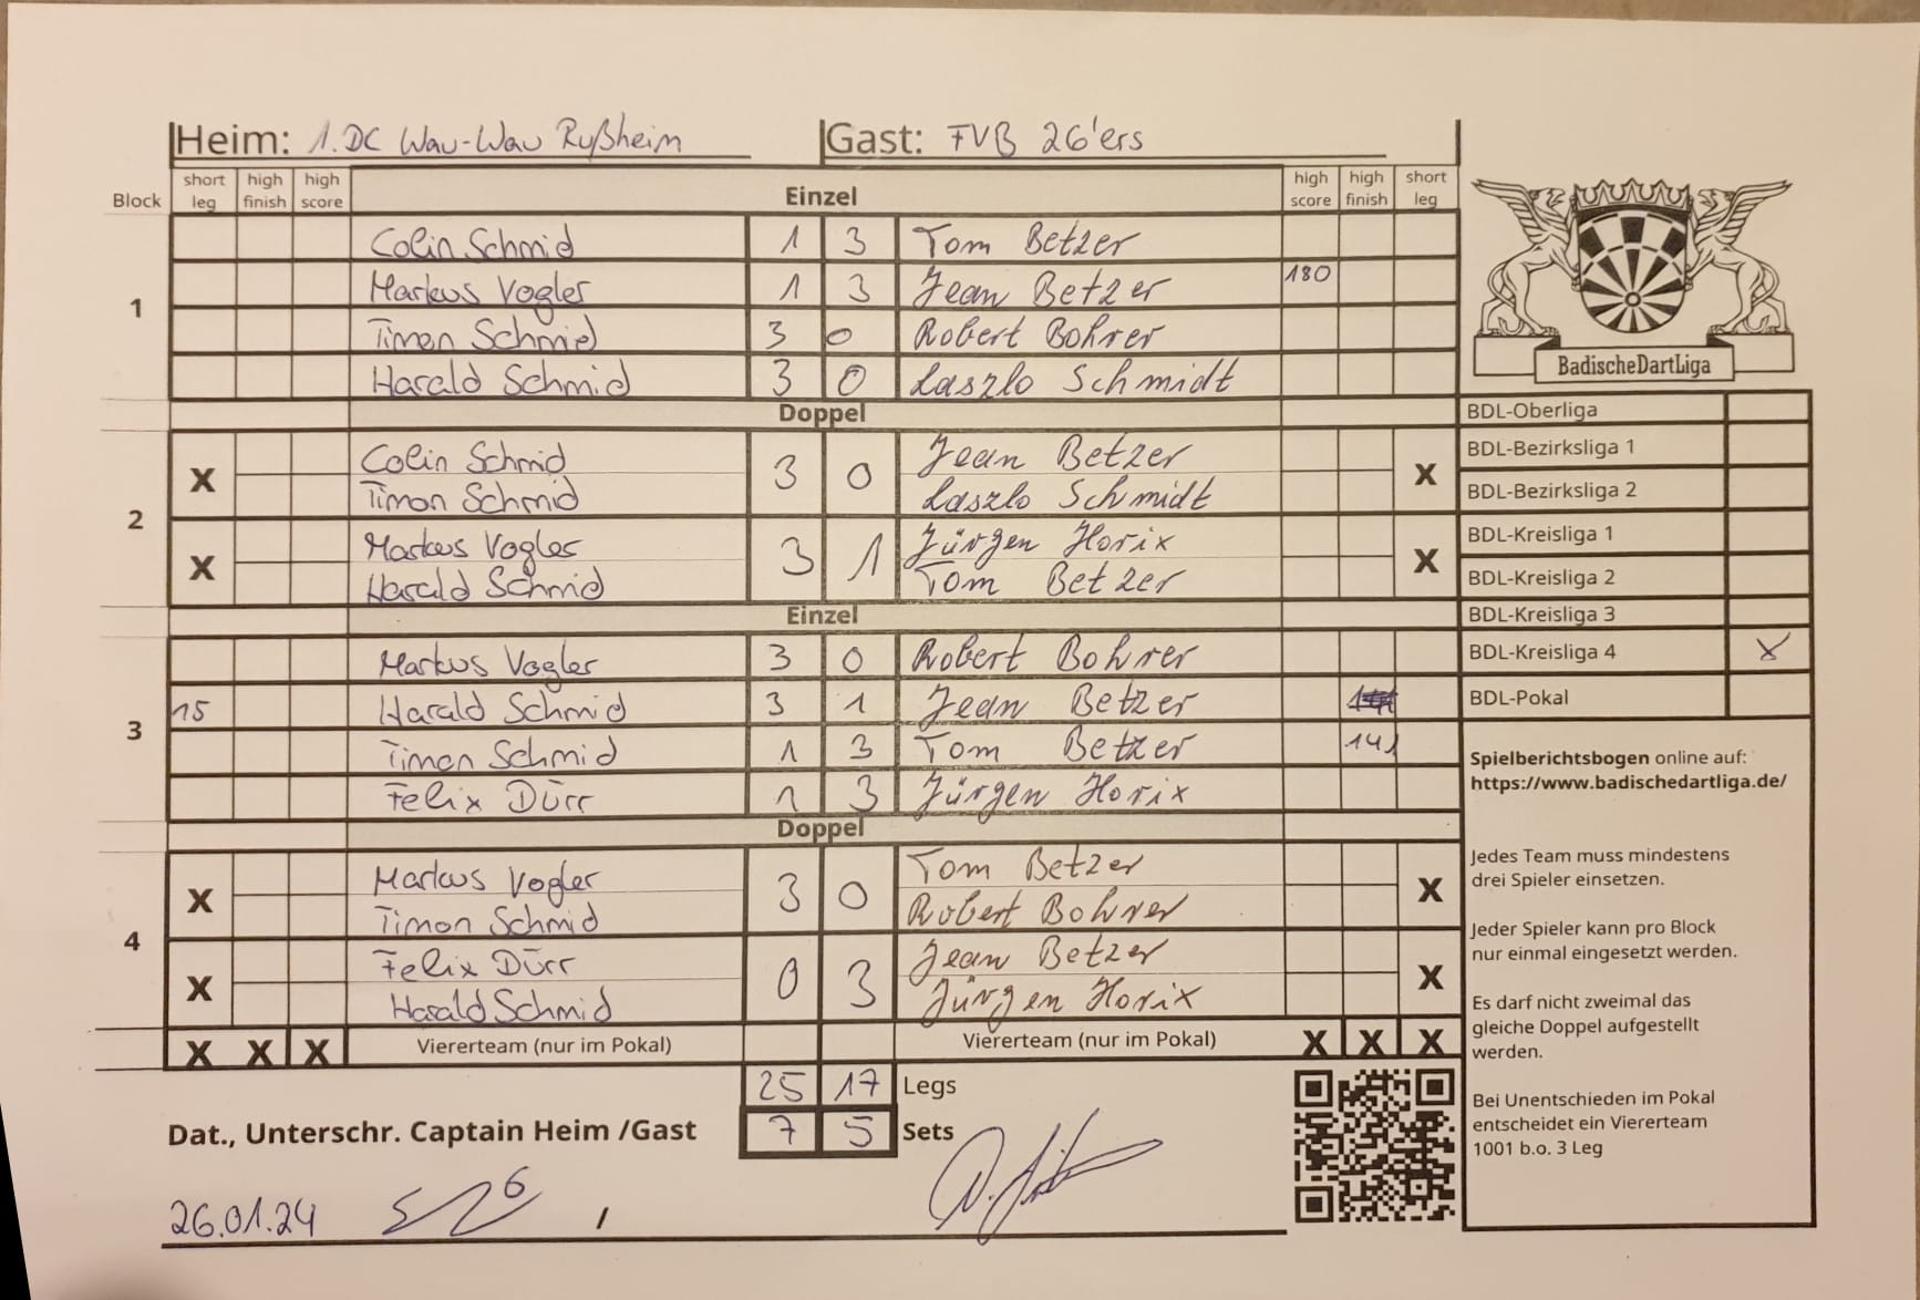 Heim: 1.DC Wau-Wau Rußheim Gast: FVB 26'ers
Block short leg high finish high score Einzel high score high finish short leg
Colin Schmid 1 3 Tom Betzer
1 Markus Vogler 1 3 Jean Betzer 180
Timon Schmid 3 0 Robert Bohrer
Harald Schmid 3 0 Laszlo Schmidt
Doppel
2
X Colin Schmid 3 0 Jean Betzer X
Timon Schmid Laszlo Schmidt
X Markus Vogler 3 1 Jürgen Horix X
Harald Schmid Tom Betzer
Einzel
3
Markus Vogler 3 0 Robert Bohrer
15 Harald Schmid 3 1 Jean Betzer
Timon Schmid 1 3 Tom Betzer 141
Felix Dürr 1 3 Jürgen Horix
Doppel
4
X Markus Vogler 3 0 Tom Betzer X
Timon Schmid Robert Bohrer
X Felix Dürr 0 3 Jean Betzer X
Harald Schmid Jürgen Horix
X X X Viererteam (nur im Pokal) Viererteam (nur im Pokal) X X X
25 17 Legs
Dat., Unterschr. Captain Heim /Gast 7 5 Sets
26.01.24 /
BadischeDartLiga
BDL-Oberliga
BDL-Bezirksliga 1
BDL-Bezirksliga 2
BDL-Kreisliga 1
BDL-Kreisliga 2
BDL-Kreisliga 3
BDL-Kreisliga 4 X
BDL-Pokal
Spielberichtsbogen online auf:
https://www.badischedartliga.de/
Jedes Team muss mindestens
drei Spieler einsetzen.
Jeder Spieler kann pro Block
nur einmal eingesetzt werden.
Es darf nicht zweimal das
gleiche Doppel aufgestellt
werden.
Bei Unentschieden im Pokal
entscheidet ein Viererteam
1001 b.o. 3 Leg